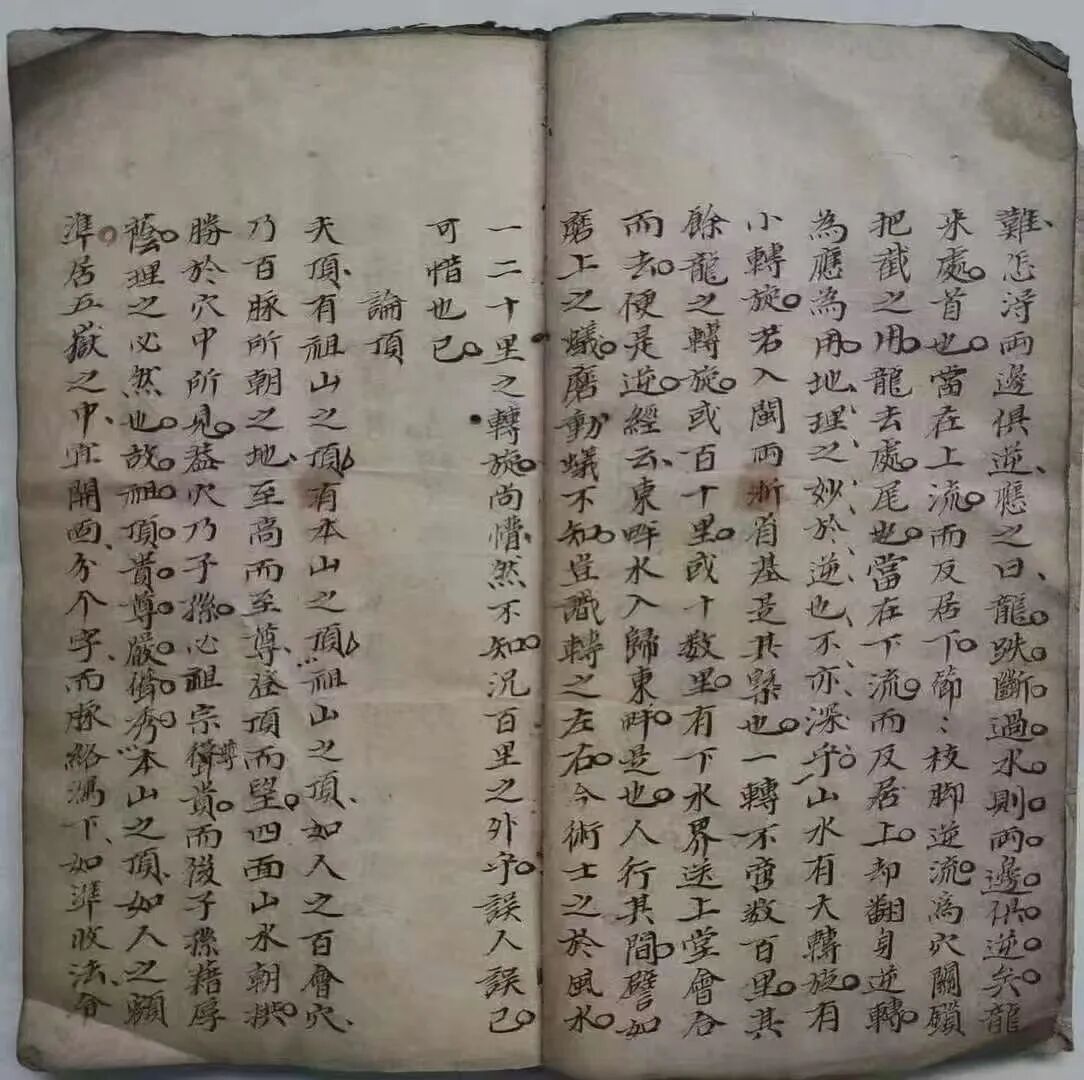 難怎浔兩邊俱逆應之曰龍跌斷過水則兩邊俱逆矣龍
来處首也當在上流而反居下節〻枝脚逆流為穴關鎖
把截之用龍去處尾也當在下流而反居上却翻身逆轉
為應為用地理之妙於逆也不亦深乎山水有大轉旋有
小轉旋若入閩兩浙省基是其緊也一轉不啻数百里其
餘龍之轉旋或百十里或十数里有下水界送上堂會合
而去便是逆經云東畔水入歸東畔是也人行其間譬如
磨上之蟻磨動蟻不知豈識轉之左右今術士之於風水
一二十里之轉旋尚懵然不知况百里之外乎誤人誤己
可惜也已
論頂
夫頂有祖山之頂有本山之頂祖山之頂如人之百會穴
乃百脉所朝之地至高而至尊登頂而望四面山水朝拱
勝於穴中所見葢穴乃子孫必祖宗尊貴而後子孫藉厚
蔭理之必然也故祖頂貴尊嚴脩秀本山之頂如人之額
準居五嶽之中宜開面分个字而脉絡瀉下如準收法令